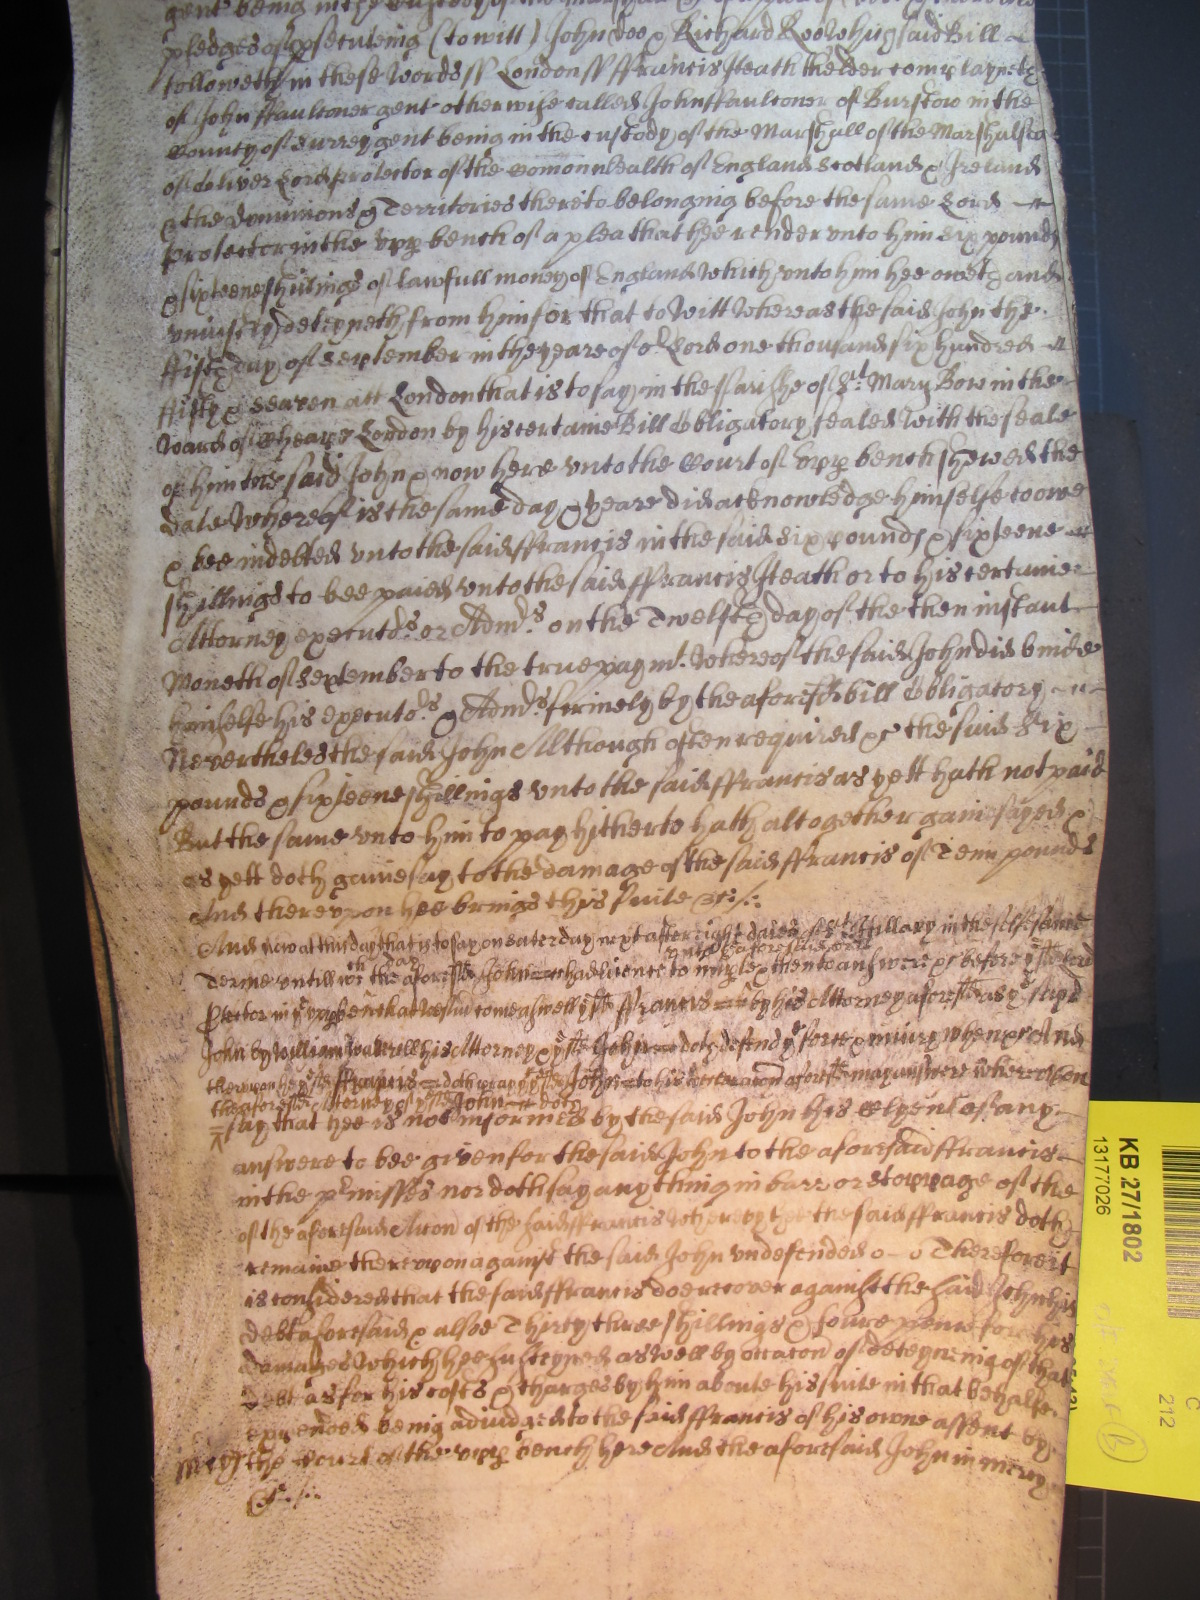 gent being in the custody of the Marshall
pledges of prosecuteing (to witt) John Doo & Richard Roo Which said Bill
followeth in these Words ss London ss ffrancis Heath the elder complayneth
of John ffaulconer gent otherwise called John ffaulconer of Burstow in the
County of Surrey gent being in the custody of the Marshall of the Marshalsea
of Oliver Lord Protector of the Comonwealth of England Scotland & Ireland
& the dominions & Territories thereto belonging before the same Lord
Protector in the upp bench of a plea that hee render unto him six pounds
& sixteene shillings of lawfull money of England Which unto him hee oweth and
uniustly deteyneth from him for that to Witt Whereas the said John the
ffifth day of September in the yeare of or Lord one thousand six hundred
ffifty & Seaven att London that is to say in the Parishe of St Mary Bow in the
Ward of Cheape London by his certaine Bill Obligatory sealed With the seale
of him the said John & now here unto the Court of upp bench shewed the
date Whereof is the same day & yeare did acknowledge himselfe to owe
& bee indebted unto the said ffrancis in the said six pounds & sixteene
shillings to bee paied unto the said ffrancis Heath or to his certaine
Attorney executors or Admrs on the Twelfth day of the then instant
Moneth of September to the true paymt Whereof the said John did binde
himselfe his executors & Admrs firmely by the aforesd bill Obligatory
Nevertheles the said John Although often required &c the said Six
pounds & sixteene shillings unto the said ffrancis as yett hath not paid
But the same unto him to pay hitherto hath altogether gainesayed &
as yett doth gainesay to the damage of the said ffrancis of Tenn pounds
And thereupon hee brings this suite &c
And now at this day that is to say on Saterday next after eight daies of St Hillary in the selfe same
unto the aforesaid bill
Terme untill wch day the aforesd John had licence to imparle & then to answere &c before ye sd Lord
Protector in ye upp bench att Westm come aswell ye sd ffrancis by his Attorney aforesd as ye said
John by William his Attorney & ye sd John doth defend ye force & iniury when &c And
thereupon he ye sd ffrancis doth pray ye sd John to his declaracon aforesd may answere Whereupon
the aforesd Attorney of ye sd John doth
say that hee is not informed by the said John his Clyent of any
answere to bee given for the said John to the aforesaid ffrancis
in the prmisses nor doth say any thing in barr or stoppage of the
of the aforesaid Accon of the said ffrancis Whereby the said ffrancis doth
remaine thereupon against the said John undefended Therefore it
is considered that the said ffrancis doe recover against the said John his
debt aforesaid & alsoe Thirty three shillings & foure pence for his
damages Which hee susteyned as well by occacon of deteyneing of that
debt as for his costs & charges by him aboute his suite in that behalfe
expended being adiudged to the said ffrancis of his owne assent by
mercy the Court of the upp bench here And the aforesaid John in mercy
&c
KB 27/1802
13177026
C
212